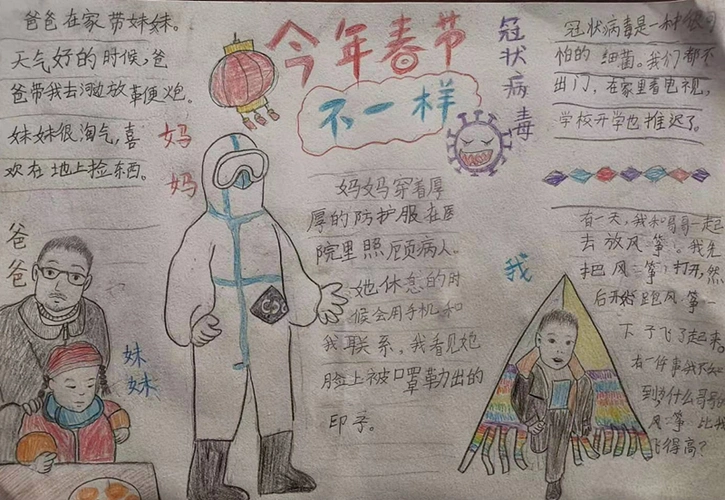 今年春节
不一样
爸爸在家带妹妹。
天气好的时候,爸
爸带我去河边放革便炮。
妹妹很淘气,喜
欢在地上捡东西。
妈
妈
爸
爸
妹
妹
冠
状
病
毒
妈妈穿着厚
厚的防护服在医
院里照顾病人。
她休息的时
候会用手机和
我联系,我看见她
脸上被口罩勒出的
印子。
我
冠状病毒是一种很可
怕的细菌。我们都不
出门,在家里看电视,
学校开学也推迟了。
有一天,我和哥哥一起
去放风筝。我先
把风筝打开,然
后开始跑风筝一
下子飞了起来。
有一件事我不知
到为什么哥哥
风筝比我
飞得高?